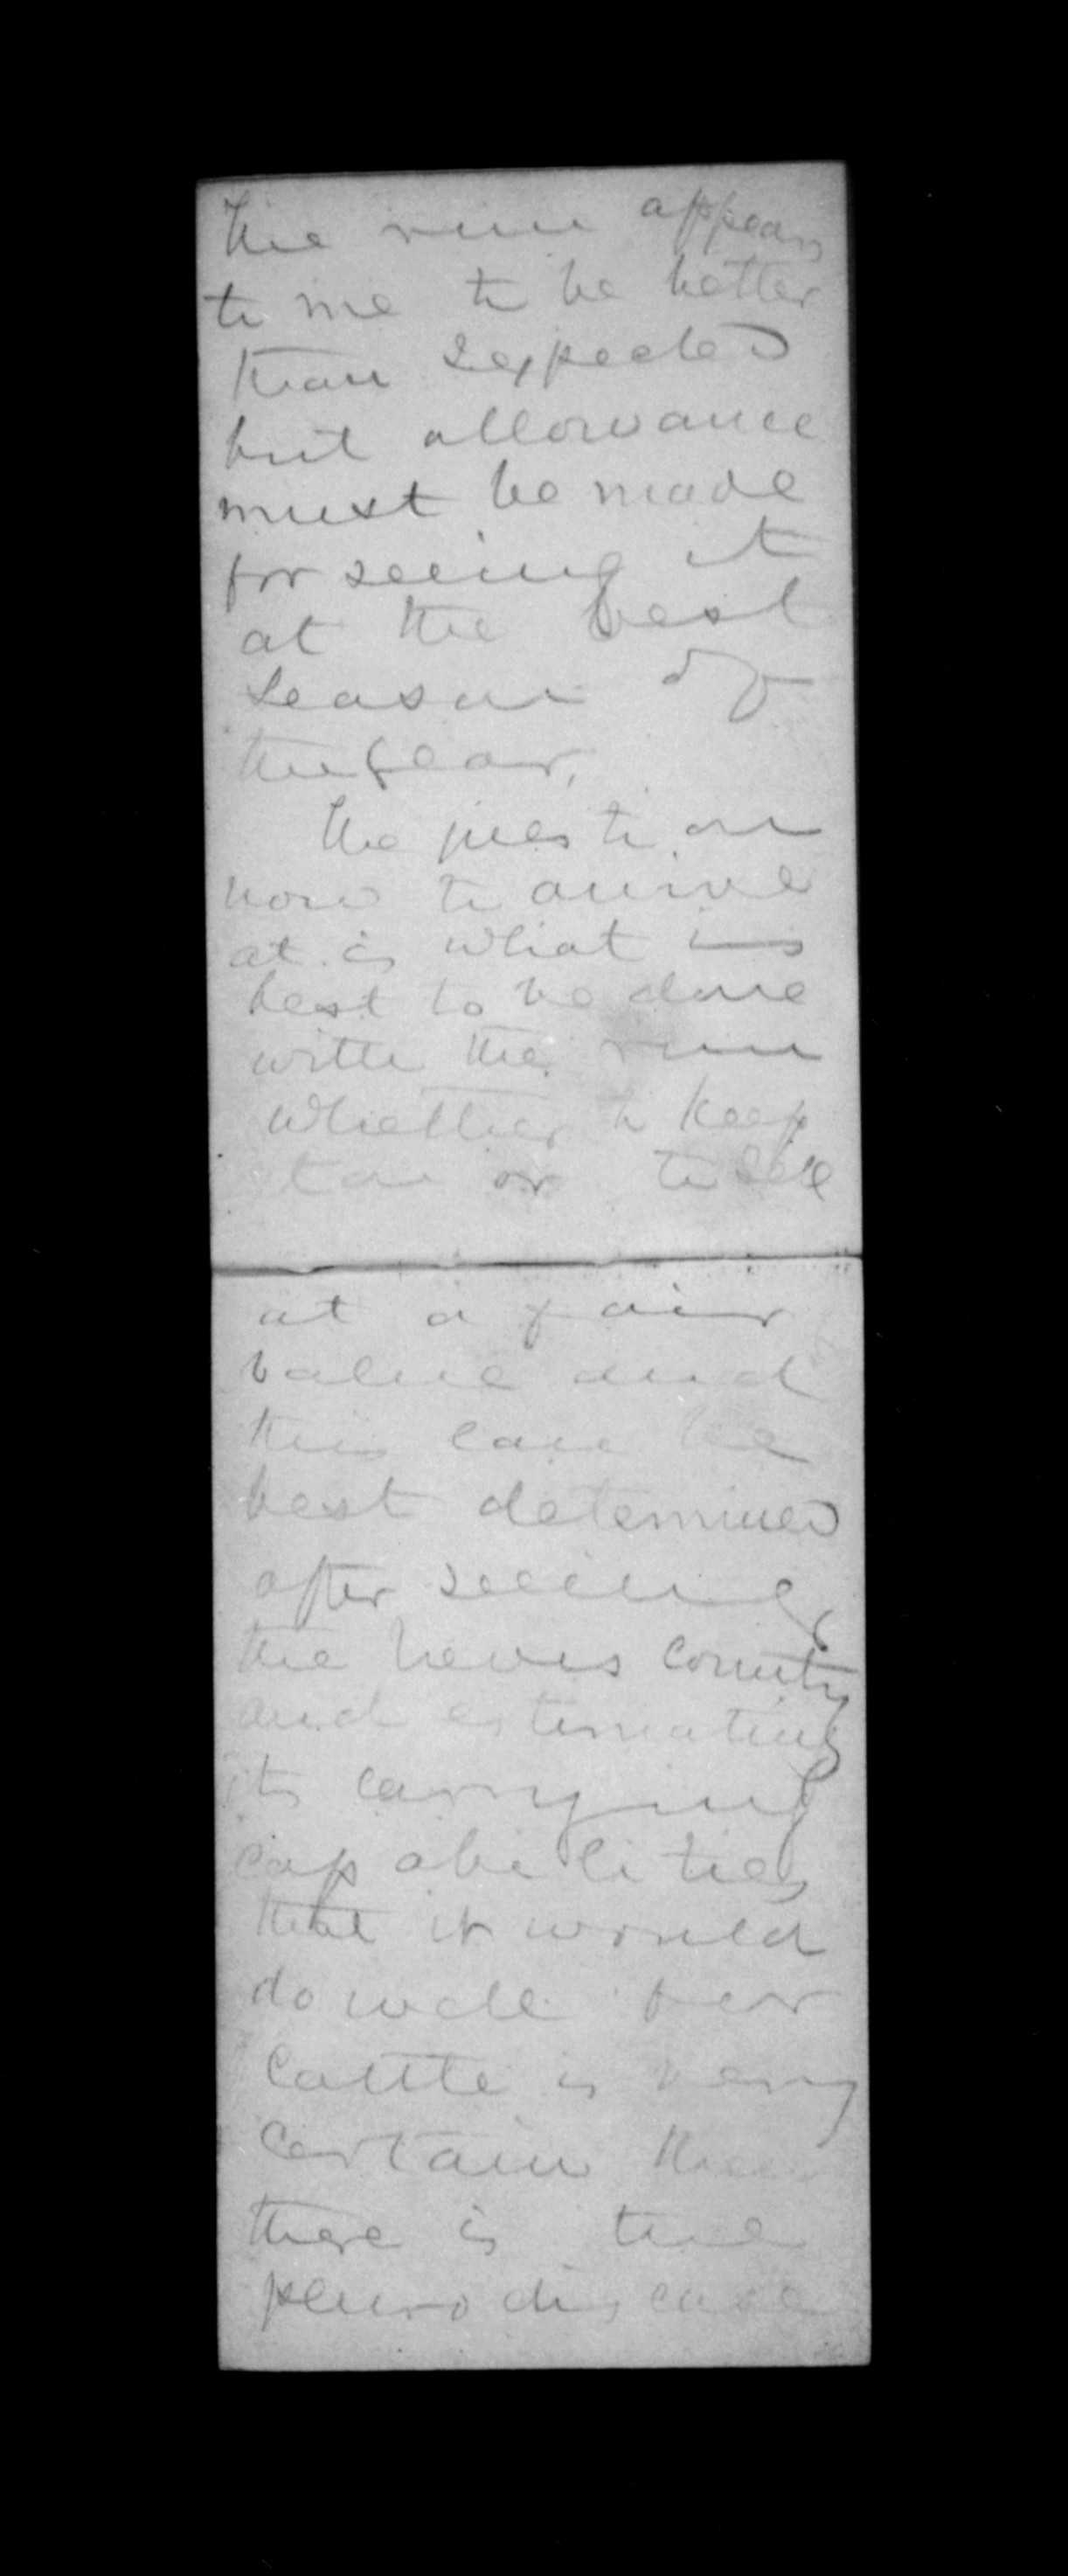 The run appears
to me to be better
than expected
but allowance
must be made
for seeing it
at the best
season of
the year.
The question
now to arrive
at is what is
best to be done
with the run
whether to keep
or to sell
at a fair
value and
this can be
best determined
after seeing
the country
and estimating
its carrying
capabilities
that it would
do well for
cattle is very
certain then
there is the
pleuro disease